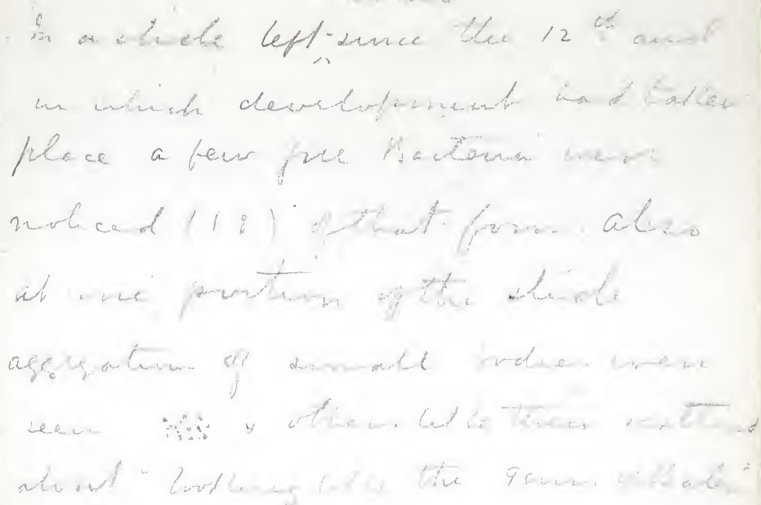 In a slide left since the 12th and
in which development had taken
place a few free Bacteria were
noticed of that form. also
at one portion of the slide
aggregation of small bodies were
seen & others like them scattered
about looking like the germ